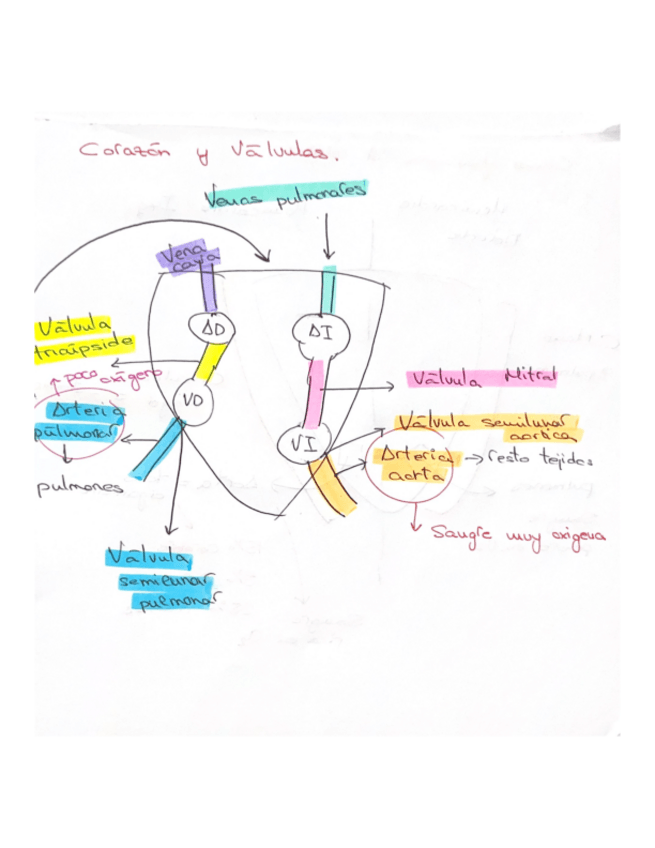 Corazón y Válvulas.
Venas pulmonares
Vena
cava
Válvula
tricúspide
AD
AI
poco oxígeno
VD
Válvula Mitral
Arteria
pulmonar
Válvula semilunar
aórtica
VI
Arteria
aorta
resto tejidos
pulmones
Sangre muy oxigena
Válvula
semilunar
pulmonar